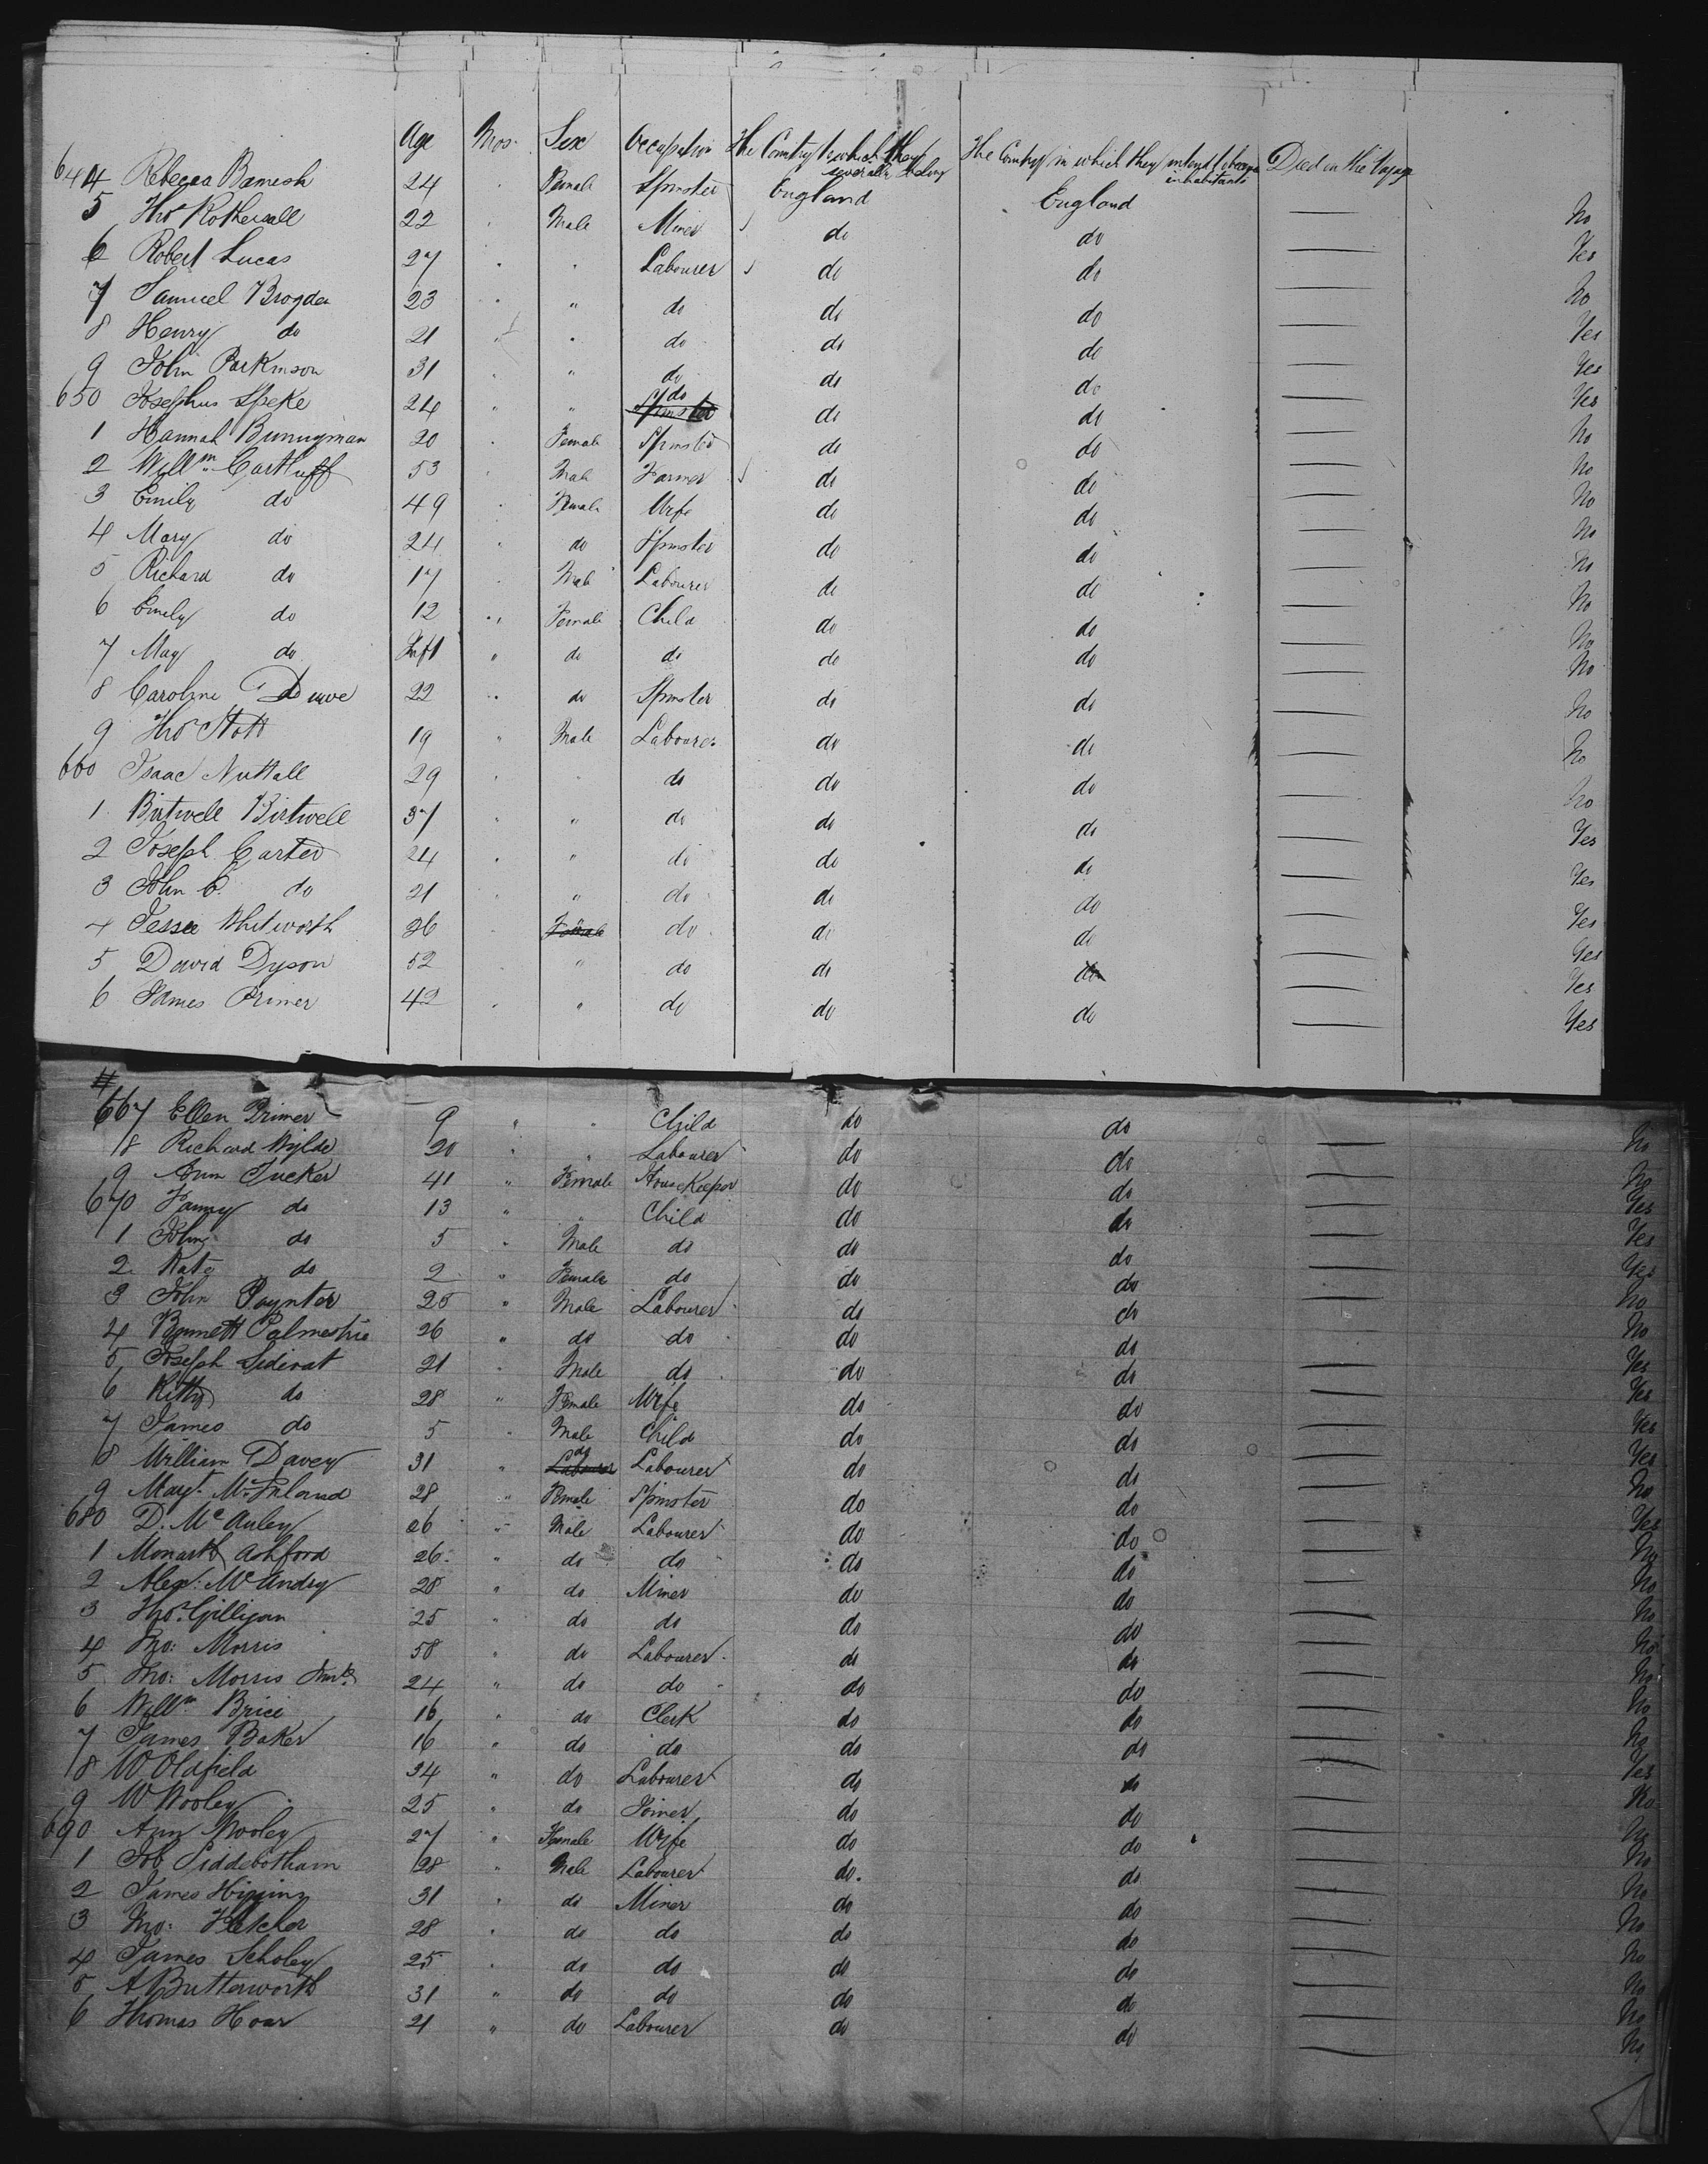 Age Mos. Sex Occupation The Country to which they severally belong The Country in which they intend to become inhabitants Died on the Voyage
644 Rebecca Bamesh 24 Female Spinster England England — No
5 Thos Rothersall 22 " Male Miner do do — Yes
6 Robert Lucas 27 " " Labourer do do — No
7 Samuel Brogden 23 " " do do do — Yes
8 Henry do 21 " " do do do — Yes
9 John Parkinson 31 " " do do do — Yes
650 Josephus Speke 24 " " do do do — No
1 Hannah Bunnyman 20 " Female Spinster do do — No
2 Willm Cartluff 53 " Male Farmer do do — No
3 Emily do 49 " Female Wife do do — No
4 Mary do 24 " do Spinster do do — No
5 Richard do 17 " Male Labourer do do — No
6 Emily do 12 " Female Child do do — No
7 May do Inft " do do do do — No
8 Caroline 22 " do Spinster do do — No
9 Thos Stott 19 " Male Labourer do do — No
660 Isaac Nuttall 29 " " do do do — No
1 Birtwell Birtwell 37 " " do do do — Yes
2 Joseph Carter 24 " " do do do — Yes
3 John C. do 21 " " do do do — Yes
4 Jessee Whitworth 26 " Female do do do — Yes
5 David Dyson 52 " " do do do — Yes
6 James Primer 42 " " do do do — Yes
667 Ellen Primer 9 " " Child do do — No
8 Richard Wylde 20 " " Labourer do do — No
9 Ann Tucker 41 " Female HouseKeeper do do — Yes
670 Fanny do 13 " " Child do do — Yes
1 John do 5 " Male do do do — Yes
2 Kate do 2 " Female do do do — No
3 John Paynter 25 " Male Labourer do do — No
4 Bennett 26 " do do do do — Yes
5 Joseph 21 " Male do do do — Yes
6 Kitty do 28 " Female Wife do do — Yes
7 James do 5 " Male Child do do — Yes
8 William Davey 31 " do Labourer do do — No
9 Magt. 28 " Female Spinster do do — Yes
680 D. McAuley 26 " Male Labourer do do — No
1 Ashford 26 " do do do do — No
2 Alex: 28 " do Miner do do — No
3 Thos. Gilligan 25 " do do do do — No
4 Jno: Morris 58 " do Labourer do do — No
5 Jno: Morris Junr. 24 " do do do do — No
6 Willm Brice 16 " do Clerk do do — No
7 James Baker 16 " do do do do — Yes
8 W Oldfield 34 " do Labourer do do — No
9 W Wooley 25 " do Joiner do do — No
690 Ann Wooley 27 " Female Wife do do — No
1 Job Siddebotham 28 " Male Labourer do. do — No
2 James Higgins 31 " do Miner do do — No
3 Jno: Fletcher 28 " do do do do — No
4 James Scholey 25 " do do do do — No
5 A Butterworth 31 " do do do do — No
6 Thomas Hoar 21 " do Labourer do do — No